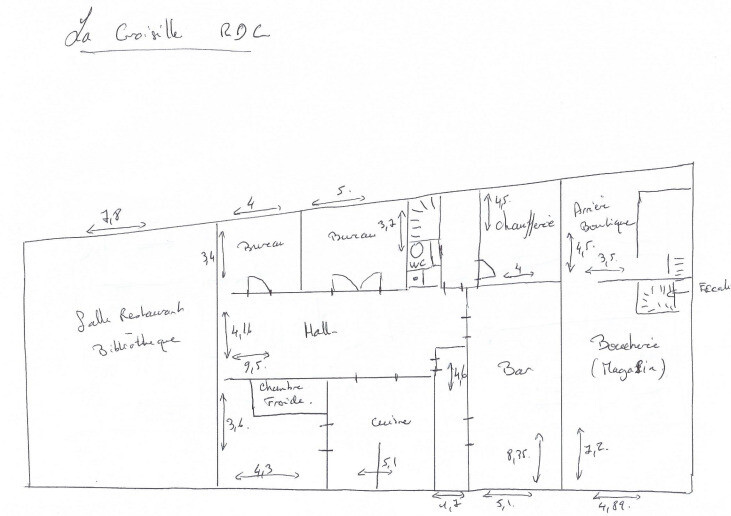 La Croisille RDC
7,8
4
5.
3,4
Bureau
Bureau
3,7
WC
4,5
Chaufferie
4
Arrière
Boutique
4,5.
3,5.
Escali
Salle Restaurant
-
Bibliothèque
4,16
Hall
9,5.
Chambre
Froide.
3,6.
4,3
Cuisine
5,1
4,6
1,7
Bar
8,35.
5,1.
Boucherie
(Magasin)
7,2.
4,89.